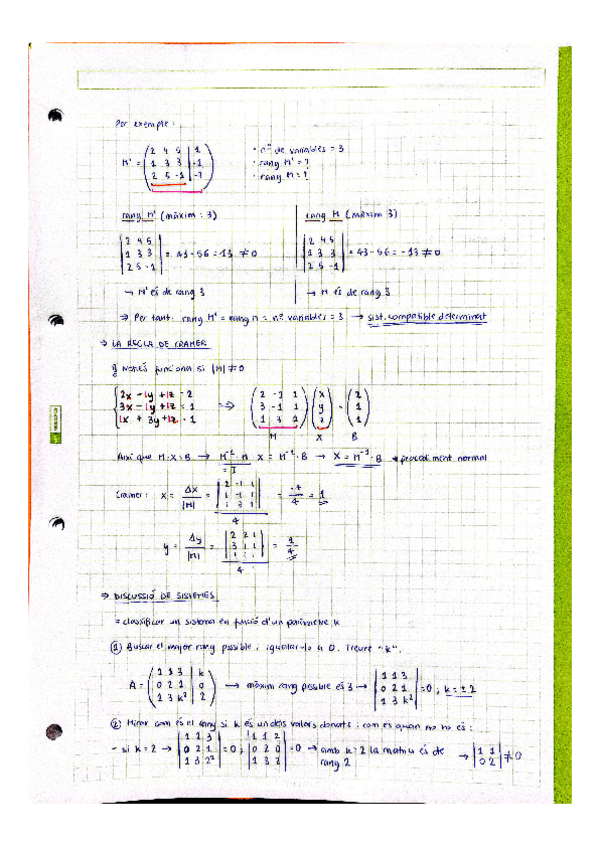 Per exemple:
M' = ( 2 4 5 | 1 ; 1 3 3 | -1 ; 2 5 -1 | -7 )
· nº de variables = 3
· rang M' = ?
· rang M = ?
rang M' (màxim: 3)
| 2 4 5 ; 1 3 3 ; 2 5 -1 | = 43 - 56 = -13 ≠ 0
→ M' és de rang 3
rang M (màxim 3)
| 2 4 5 ; 1 3 3 ; 2 5 -1 | = 43 - 56 = -13 ≠ 0
→ M és de rang 3
⇒ Per tant. rang M' = rang M = nº variables = 3 → sist. compatible determinat
⇒ LA REGLA DE CRAMER
Només funciona si |M| ≠ 0
{ 2x - 1y + 1z = 2 ; 3x - 1y + 1z = 1 ; 1x + 3y + 1z = 1
⇒ ( 2 -1 1 ; 3 -1 1 ; 1 3 1 ) ( x ; y ; z ) = ( 2 ; 1 ; 1 )
M X B
Així que M·X = B → M⁻¹·M X = M⁻¹·B → X = M⁻¹·B procediment normal
= I
Cramer: x = Δx / |M| = | 2 -1 1 ; 1 -1 1 ; 1 3 1 | / 4
y = Δy / |M| = / 4
⇒ DISCUSSIÓ DE SISTEMES
= classificar un sistema en funció d'un paràmetre k
① Buscar el major rang possible, igualar-lo a 0. Treure "k".
A = ( 1 1 3 | k ; 0 2 1 | 0 ; 1 3 k² | 2 ) → màxim rang possible és 3 → | 1 1 3 ; 0 2 1 ; 1 3 k² | = 0 ; k = ± 2
② Mirar com és el rang si k és un dels valors donats i com és quan no ho és:
- si k = 2 → | 1 1 3 ; 0 2 1 ; 1 3 2² | = 0 ; | 1 1 2 ; 0 2 0 ; 1 3 2 | = 0 → amb k = 2 la matriu és de → | 1 1 ; 0 2 | ≠ 0
rang 2